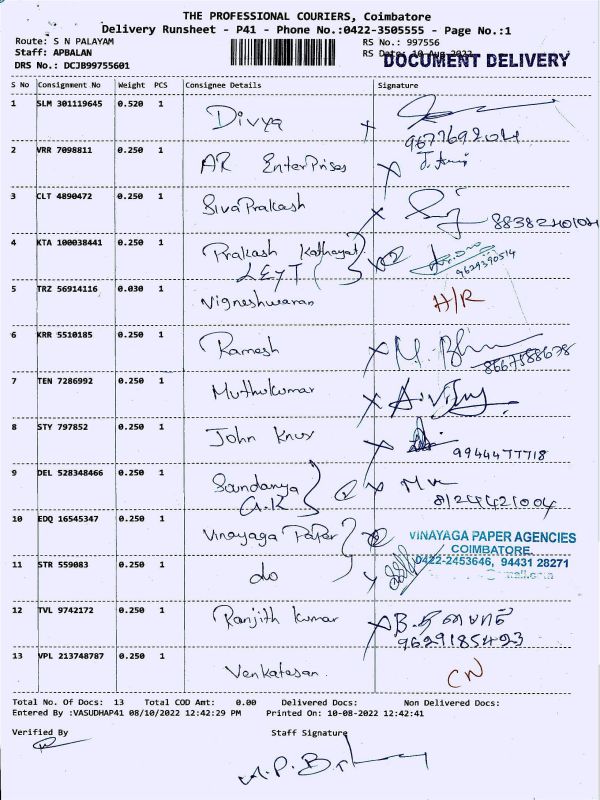 THE PROFESSIONAL COURIERS, Coimbatore
Delivery Runsheet - P41 - Phone No.:0422-3505555 - Page No.:1
Route: S N PALAYAM RS No.: 997556
Staff: APBALAN RS Date: 10-Aug-2022
DOCUMENT DELIVERY
DRS No.: DCJB99755601
S No Consignment No Weight PCS Consignee Details Signature
1 SLM 301119645 0.520 1 Divya
9677692024
2 VRR 7098811 0.250 1 AR Enterprises
3 CLT 4890472 0.250 1 Siva Prakash
8838240104
4 KTA 100038441 0.250 1 Prakash Kathayat
LEYT
9629390514
5 TRZ 56914116 0.030 1 Vigneshwaran H/R
6 KRR 5510185 0.250 1 Ramesh
8667588678
7 TEN 7286992 0.250 1 Muthukumar
8 STY 797852 0.250 1 John Knox
9944477718
9 DEL 528348466 0.250 1 Sandanya
G.K
8124421004
10 EDQ 16545347 0.250 1 Vinayaga Paper
VINAYAGA PAPER AGENCIES
COIMBATORE.
0422-2453646, 94431 28271
11 STR 559083 0.250 1 do
12 TVL 9742172 0.250 1 Ranjith Kumar
9629185423
13 VPL 213748787 0.250 1 Venkatesan CN
Total No. Of Docs: 13 Total COD Amt: 0.00 Delivered Docs: Non Delivered Docs:
Entered By :VASUDHAP41 08/10/2022 12:42:29 PM Printed On: 10-08-2022 12:42:41
Verified By Staff Signature